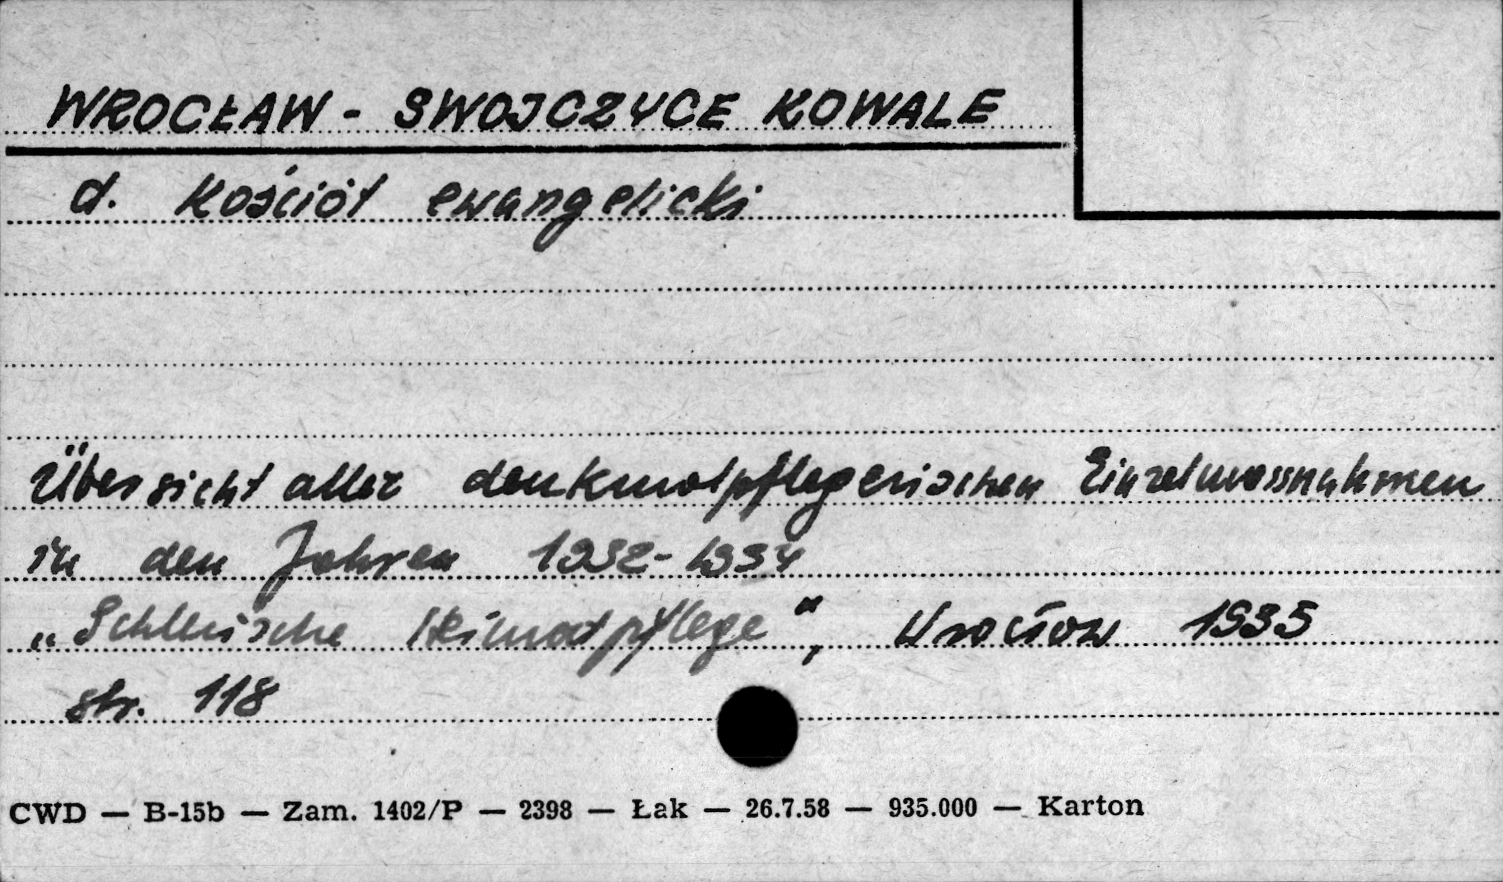 WROCŁAW - SWOJCZYCE KOWALE
d. Kościół ewangelicki
Übersicht aller denkmalpflegerischen Einzelmassnahmen
in den Jahren 1932-1934
„Schlesische Heimatpflege", Wrocław 1935
str. 118
CWD — B-15b — Zam. 1402/P — 2398 — Łak — 26.7.58 — 935.000 — Karton